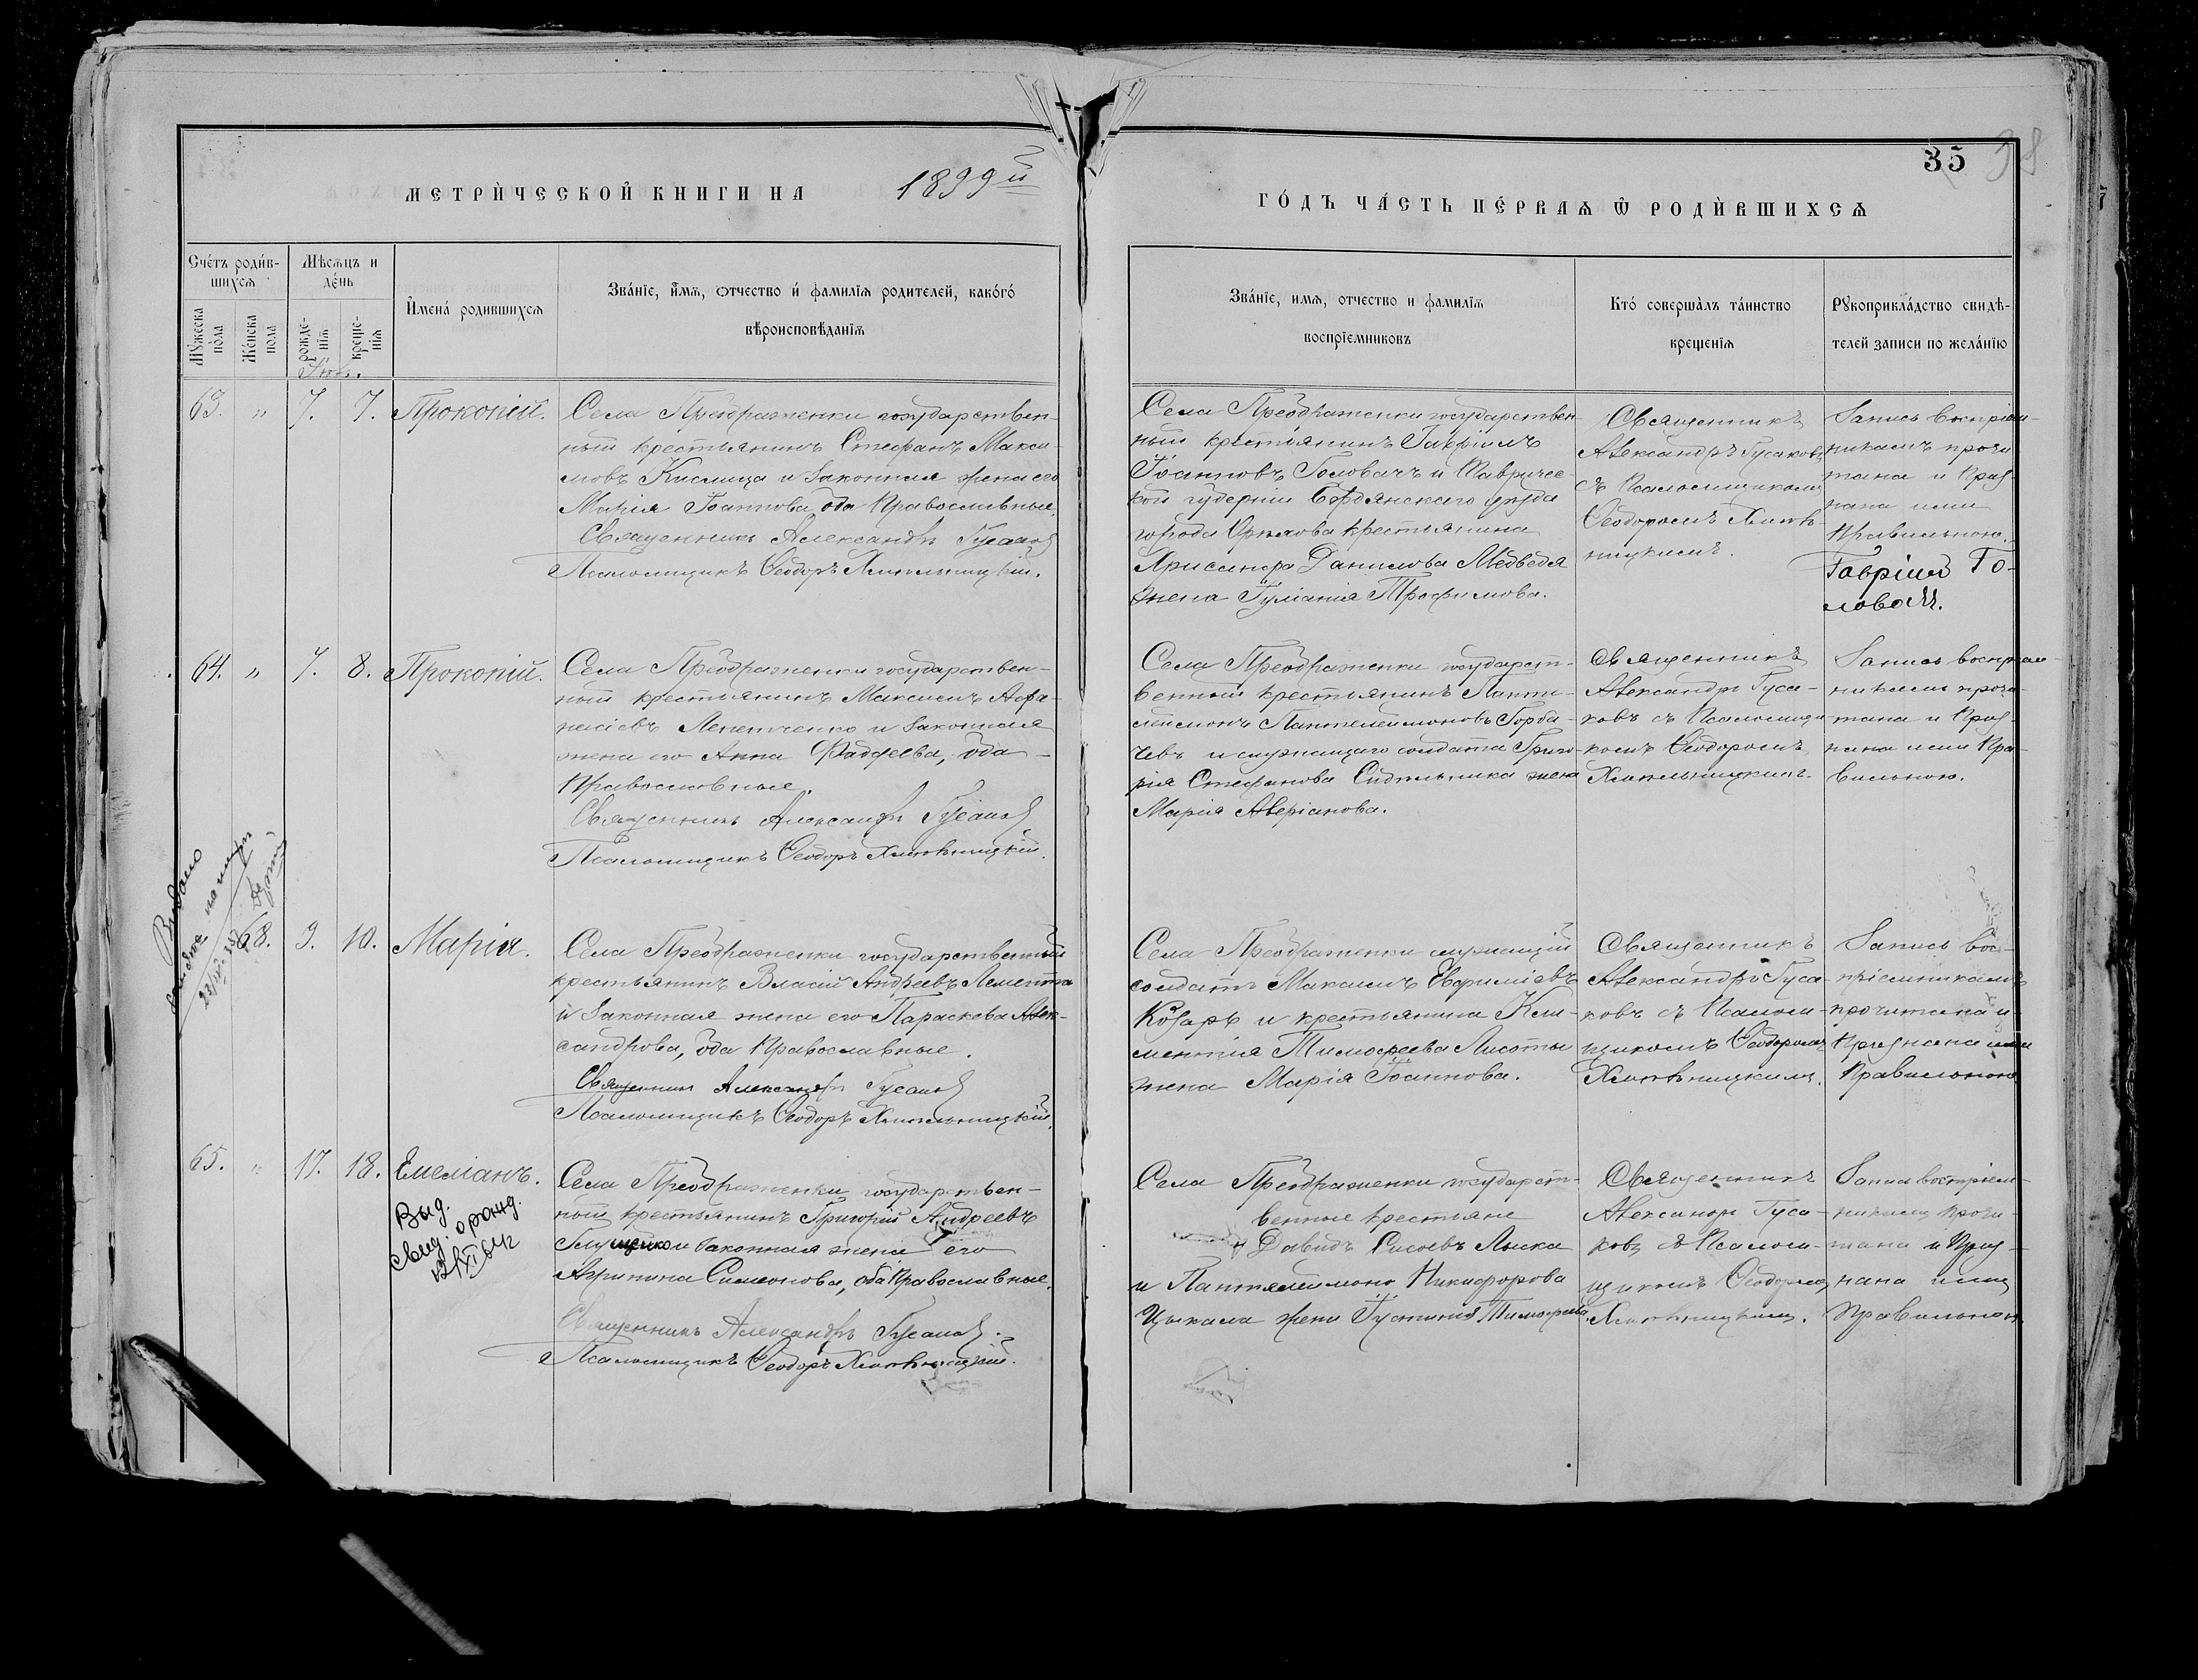 35
38
МЕТРИ́ЧЕСКОЙ КНИГИ НА 1899й
ГО́ДЪ ЧА́СТЬ ПЕ́РВАѦ Ѡ РОДИ́ВШИХСѦ
Сче́тъ роди́в-
шихсѧ
Мꙋжеска
по́ла
Же́нска
пола
Мѣсѧцъ и
де́нь
рожде-
нїѧ
креще-
нїѧ
И҆мена́ родившихсѧ
Зва́нїе, и҆́мѧ, ѻтчество и҆ фамилїѧ родителей, како́гѡ́
вѣроисповѣданїѧ
Зва́нїе, имѧ, отчество и фамилїѧ
воспрїемниковъ
Кто́ соверша́лъ та́инство
крещенїѧ
Рꙋкоприкла́дство свидѣ-
телей записи по жела́нїю
Іюль.
63. " 7. 7. Прокопій.
Села Преображенки государствен-
ный крестьянинъ Стефанъ Макси-
мовъ Кислица и законная жена его
Марія Іоаннова, оба Православные.
Священникъ Александръ Гусаковъ
Псаломщикъ Ѳеодоръ Хмѣльницкій.
Села Преображенки государствен-
ный крестьянинъ Гавріилъ
Іоанновъ Головачъ и Тавричес-
кой губерніи Бердянскаго уѣзда
города Орѣхова крестьянина
Хрисанфа Данилова Медведя
жена Іуліанія Трофимова.
Священникъ
Александръ Гусаковъ
съ Псаломщикомъ
Ѳеодоромъ Хмѣль-
ницкимъ.
Запись воспріем-
никамъ прочи
тана и приз-
нана ими
правильною.
Гавріилъ Го-
ловачъ.
64. " 7. 8. Прокопій.
Села Преображенки государствен-
ный крестьянинъ Максимъ Аѳа-
насіевъ Лепетченко и законная
жена его Анна Фаддеева, оба
Православные.
Священникъ Александръ Гусаковъ
Псаломщикъ Ѳеодоръ Хмѣльницкій.
Села Преображенки государст-
венный крестьянинъ Панте-
леймонъ Пантелеймоновъ Горба-
чевъ и служащаго солдата Григо-
рія Стефанова Сидѣльника жена
Марія Аверіанова.
Священникъ
Александръ Гуса-
ковъ съ Псаломщи-
комъ Ѳеодоромъ
Хмѣльницкимъ.
Запись воспріем-
никамъ прочи-
тана и приз-
нана ими пра-
вильною.
Выдано
68. 9. 10. Марія.
Села Преображенки государственный
крестьянинъ Власій Андреевъ Лементa
и законная жена его Параскева Алек-
сандрова, оба Православные.
Священникъ Александръ Гусаковъ
Псаломщикъ Ѳеодоръ Хмѣльницкій.
Села Преображенки служащій
солдатъ Максимъ Евфиміевъ
Козаръ и крестьянина Кли-
ментія Тимофеева Лисоты
жена Марія Іоаннова.
Священникъ
Александръ Гуса-
ковъ съ Псалом-
щикомъ Ѳеодоромъ
Хмѣльницкимъ.
Запись вос-
пріемникамъ
прочитана и
признана ими
правильною.
65. " 17. 18. Емеліанъ.
Выд.
свид. о рожд.
Села Преображенки государствен-
ный крестьянинъ Григорій Андреевъ
и законная жена его
Агрипина Симеонова, оба Православные.
Священникъ Александръ Гусаковъ.
Псаломщикъ Ѳеодоръ Хмѣльницкій.
Села Преображенки государст-
венные крестьяне
Давидъ Сисоевъ Лыска
и Пантелеймона Никифорова
Цыкала жена Іустинія Тимофеева.
Священникъ
Александръ Гуса-
ковъ съ Псалом-
щикомъ Ѳеодоромъ
Хмѣльницкимъ.
Запись воспріем-
никамъ прочи-
тана и приз-
нана ими
правильною.